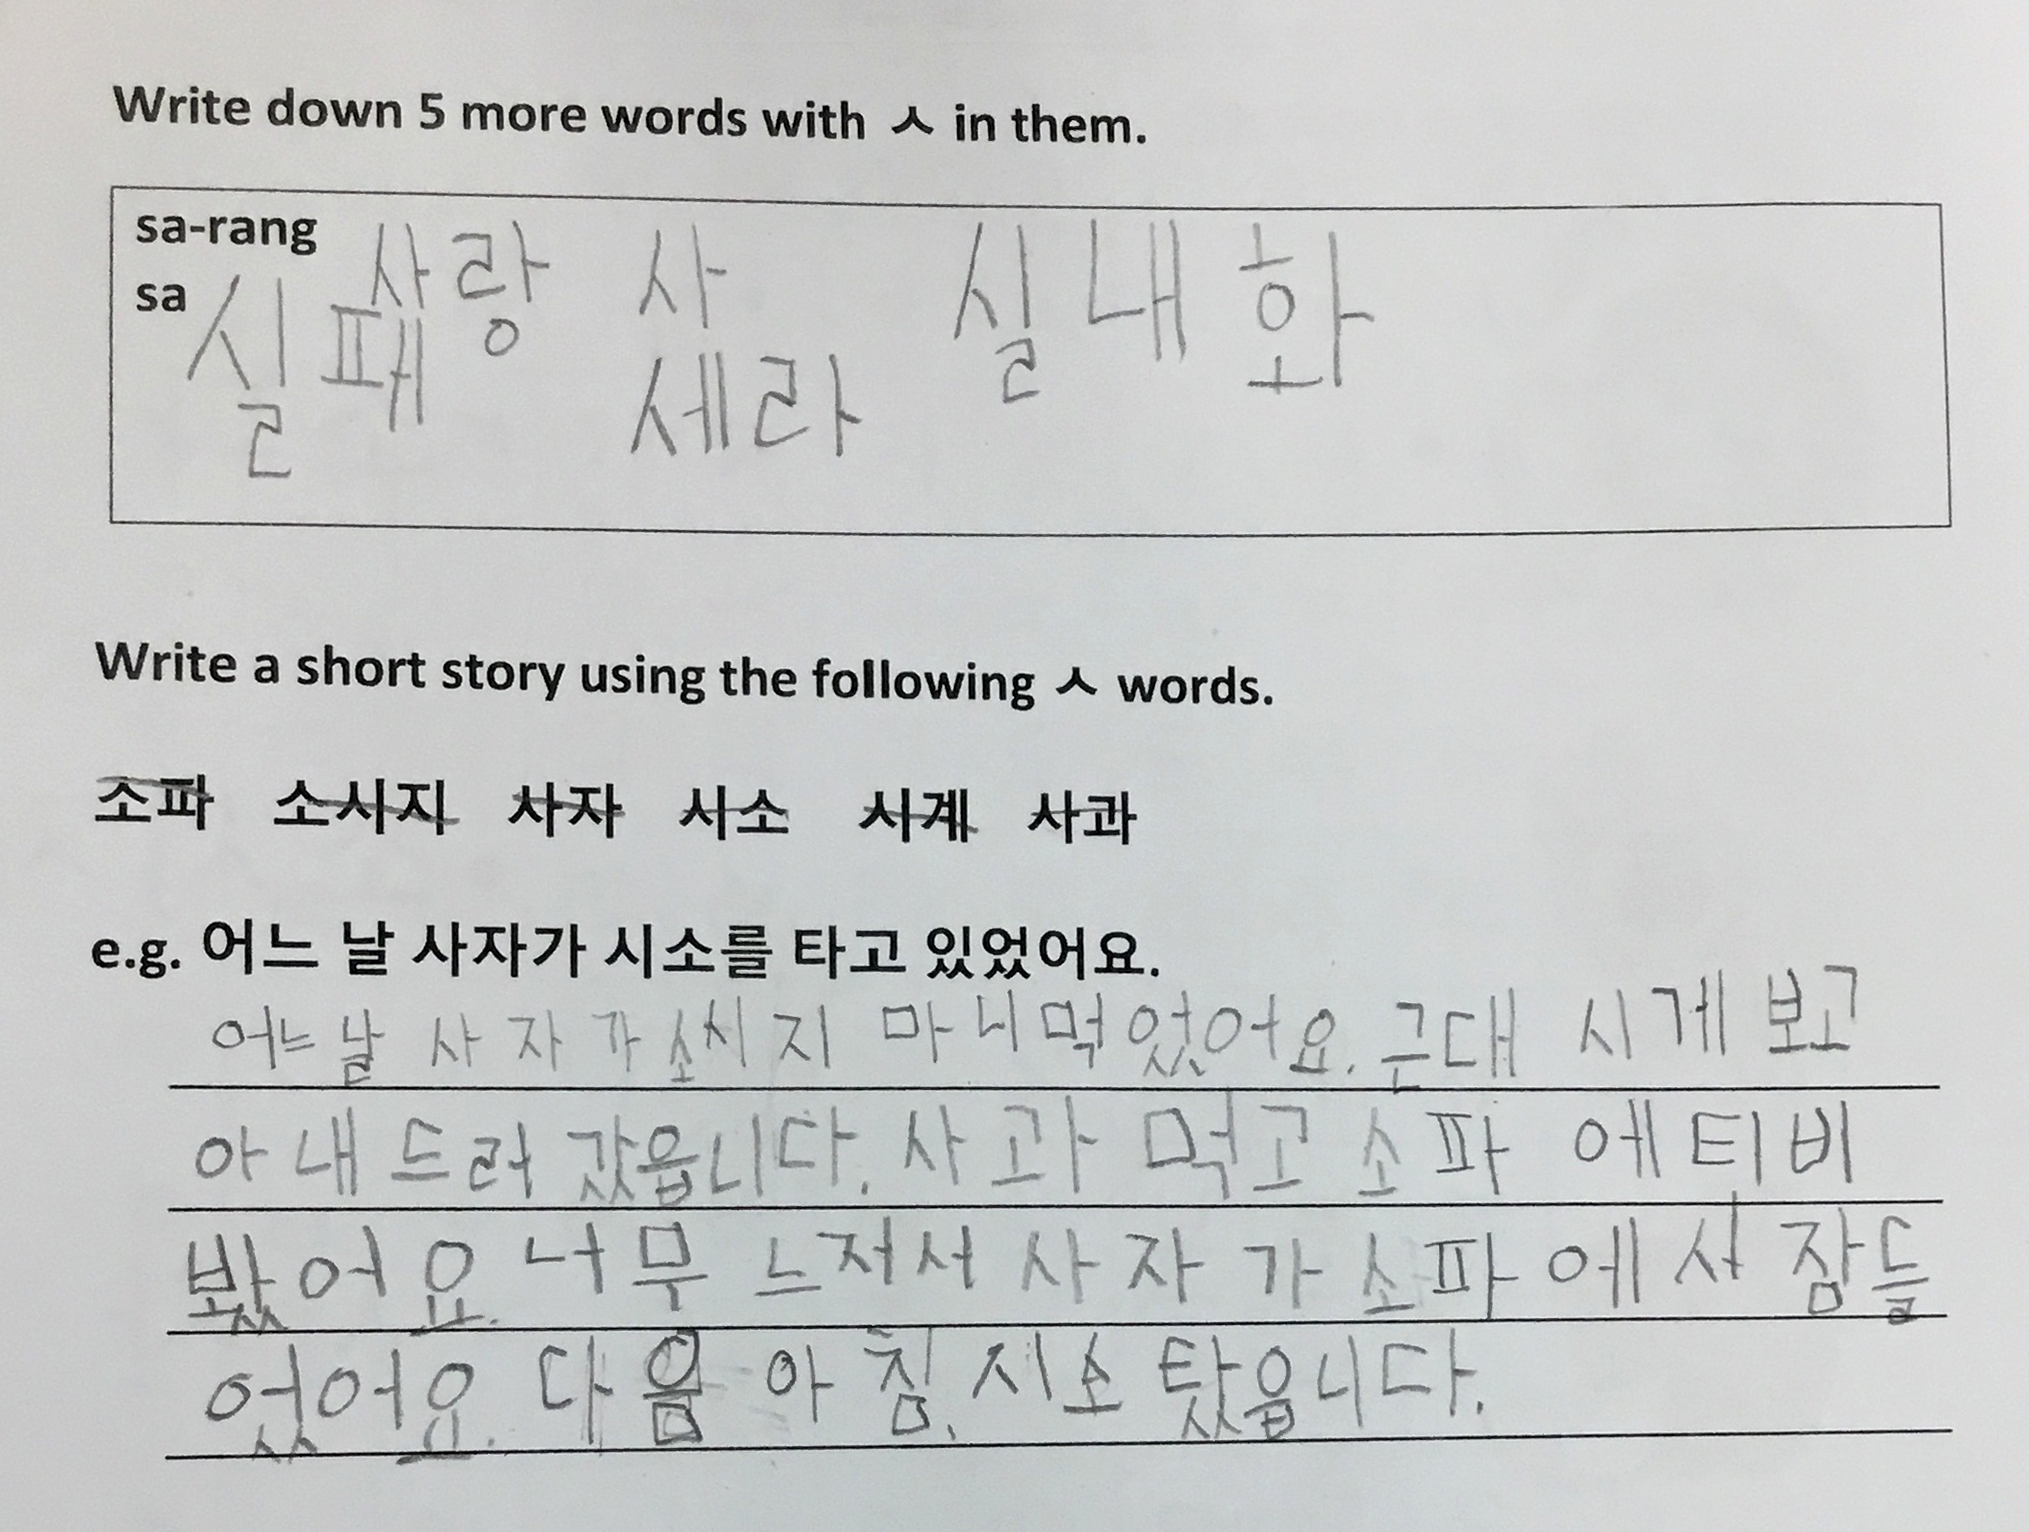 Write down 5 more words with ㅅ in them.
sa-rang 사랑 사 실내화
sa 실패 세라
Write a short story using the following ㅅ words.
소파 소시지 사자 시소 시계 사과
e.g. 어느 날 사자가 시소를 타고 있었어요.
어느날 사자가 소시지 마니 먹었어요. 근대 시게 보고
아내드러 갔읍니다. 사과 먹고 소파에 티비
봤어요. 너무 느저서 사자가 소파에서 잠들
었어요. 다음 아침, 시소 탔읍니다.